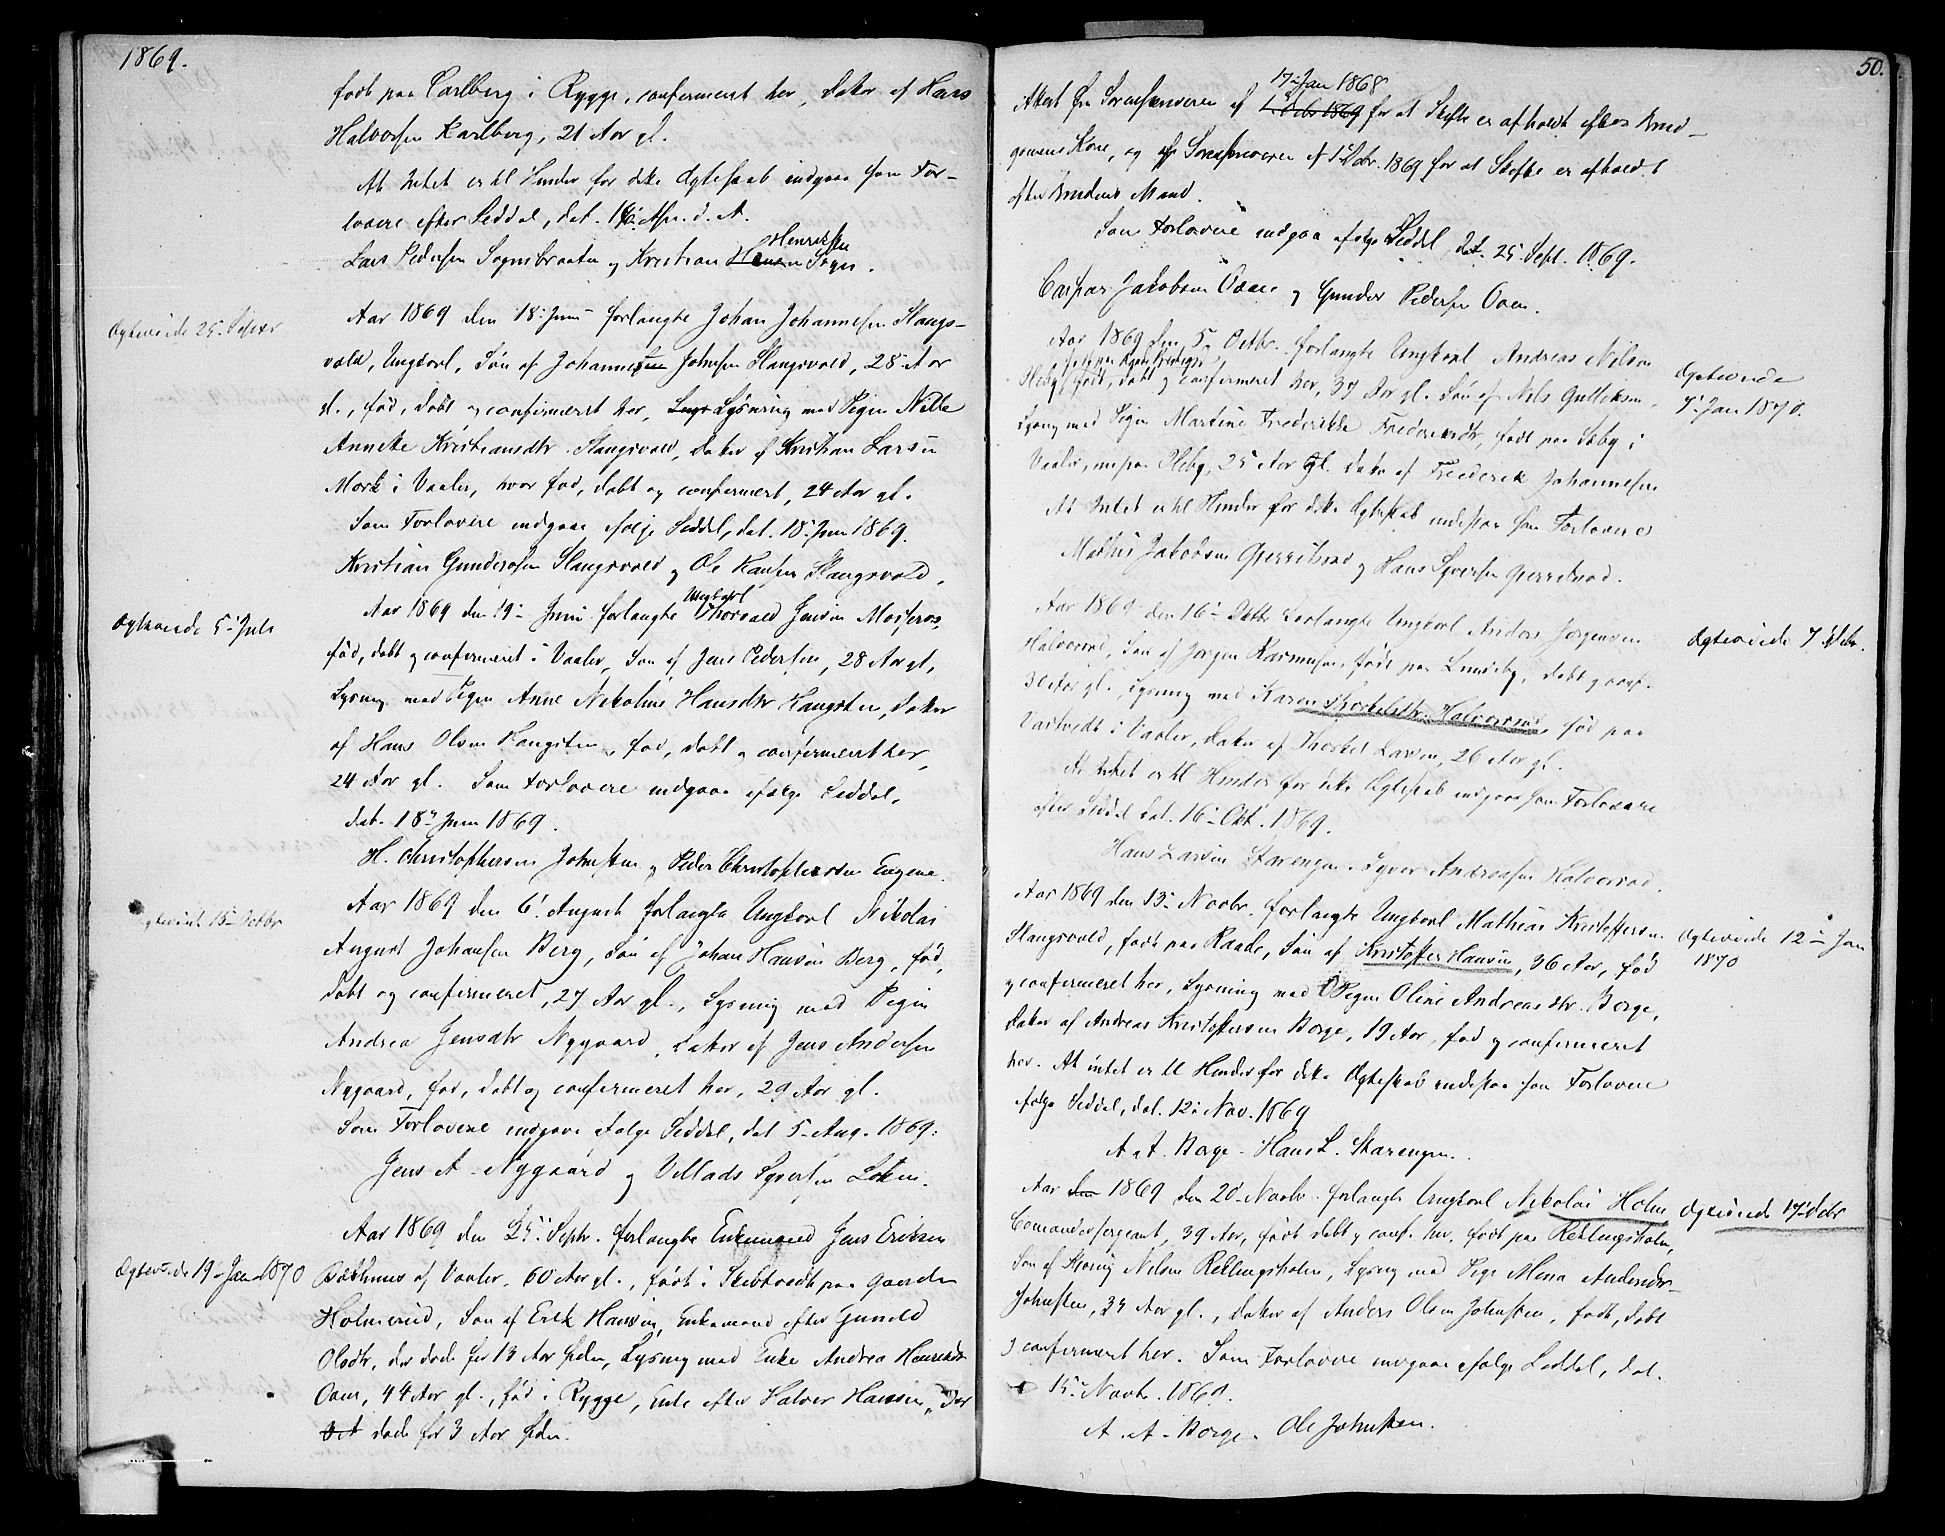 1869.
født paa Carlberg i Rygge, confirmeret her, Datter af Hans
Halvorsen Karlberg, 21 Aar gl.
At Intet er til Hinder for dette Ægteskab indgaa som For-
lovere efter Seddel, dat. 16 d. A.
Henriksen
Lars Pedersen Sognsbraaten og Kristian Sogn.
Ægteviede 25 Septbr
Aar 1869 den 18 Juni forlangte Johan Johannesen Slangs-
vold, Ungkarl, Søn af Johannes Johnsen Slangsvold, 28 Aar
gl., fød, døbt og confirmeret her, Lysning med Pigen Nille
Anneke Kristiansdtr Slangsvold, Datter af Kristian Larsen
Mork i Vaaler, hvor fød, døbt og confirmert, 24 Aar gl.
Som Forlovere indgaae ifølje Seddel, dat. 18 Juni 1869.
Kristian Gundersen Slangsvold og Ole Hansen Slangsvold.
Ægteviede 5 Juli
Ungkarl
Aar 1869 den 19 Juni forlangte Thorvald Jensen Moseros,
fød, døbt og confirmeret i Vaaler, Søn af Jens Pedersen, 28 Aar gl,
Lysning med Pigen Anne Nikoline Hansdtr Kangsten, Datter
af Hans Olsen Kangsten, fød, døbt og confirmeret her,
24 Aar gl. Som Forlovere indgaae ifølge Seddel,
dat. 18 Juni 1869.
H. Christophersen Johnsten og Peder Christophersen Engene.
Ægteviet 15 Octbr
Aar 1869 den 6 August forlangte Ungkarl Nikolai
August Johansen Berg, Søn af Johan Hansen Berg, fød,
døbt og confirmeret, 27 Aar gl., Lysning med Pigen
Andrea Jensdtr Nygaard, Datter af Jens Andersen
Nygaard, fød, døbt og confirmeret her, 29 Aar gl.
Som Forlovere indgaae ifølge Seddel, dat 5 Aug. 1869:
Jens A. Nygaard og Villads Syversen Løken.
Ægteviede 19 Jan 1870
Aar 1869 den 25 Septr. forlangte Enkemand Jens Eriksen
Bækhuus af Vaaler, 60 Aar gl., født i Skibtvedt paa Gaarden
Holmerud, Søn af Erik Hansen, Enkemand efter Gunild
Olsdtr, der døde for 13 Aar siden, Lysning med Enke Andrea Henriksdtr
Oven, 44 Aar gl., fød i Rygge, Enke efter Halvor Hansen, der
døde for 3 Aar siden.
50.
17 Jan 1868
Attest fra Sorenskriveren af 1 Octbr 1869 for at Skifte er afholdt efter Brud-
gomens Kone, og af Sorenskriveren af 1 Octbr. 1869 for at Skifte er afholdt
efter Brudens Mand.
Som Forlovere indgaa ifølge Seddel, dat. 25 Sept. 1869.
Caspar Jakobsen Oven og Gunder Pedersen Oven.
Ægteviede
7 Jan 1870.
Aar 1869 den 5 Octbr. forlangte Ungkarl Andreas Nilsen
Heby, født, døbt og confirmeret her, 37 Aar gl. Søn af Nils Gulliksen,
Lysning med Pigen Martine Frederikke Frederiksdtr, født paa Sæby i
Vaaler, nu paa Heby, 25 Aar gl. Datter af Frederik Johannesen
At Intet er til Hinder for dette Ægteskab indestaa som Forlovere
Mathis Jakobsen Gjerrebrød og Hans Syversen Gjerrebrød.
Ægteviede 7 Decbr.
Aar 1869 den 16 Octbr forlangte Ungkarl Anders Jørgensen
Halvorsrød, Søn af Jørgen Rasmussen, født paa Lundeby, døbt og conf.
Aar gl., Lysning med Karen Torkelsdtr. Halvorsrød, fød paa
i Vaaler, Datter af Thorkel Larsen, 26 Aar gl.
At Intet er til Hinder for dette Ægteskab indgaa som Forlovere
efter Seddel dat. 16 Okt. 1869.
Hans Larsen Starengen. Syver Andreasen Halvorsrød.
Ægteviede 12 Jan
1870
Aar 1869 den 13 Novbr. forlangte Ungkarl Mathias Kristoffersen
Slangsvold, født paa Raade, Søn af Kristoffer Hansen, 36 Aar, fød
og confirmeret her, Lysning med Pigen Oline Andreasdtr. Borge,
Datter af Andreas Kristoffersen Borge, 19 Aar, fød og confirmeret
her. At intet er til Hinder for dette Ægteskab indestaa som Forlovere
ifølge Seddel, dat. 12 Nov. 1869
A. A. Borge - Hans L. Starengen.
Ægteviede 17 Decbr
Aar 1869 den 20 Novbr. forlangte Ungkarl Nikolai Holm
Comandersergeant, 39 Aar, født døbt og conf. her, født paa Reklingsholm,
Søn af Nilsen Reklingsholm, Lysning med Pige Mina Andersdtr
Johnsten, 34 Aar gl., Datter af Anders Olsen Johnsten, født, døbt
og confirmeret her. Som Forlovere indgaae ifølge Seddel, dat.
15 Novbr. 1869.
A. A. Borge. Ole Johnsten.